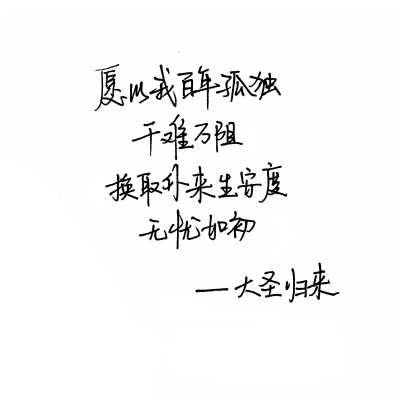 愿以我百年孤独
千难万阻
换取你来生安度
无忧如初
—大圣归来